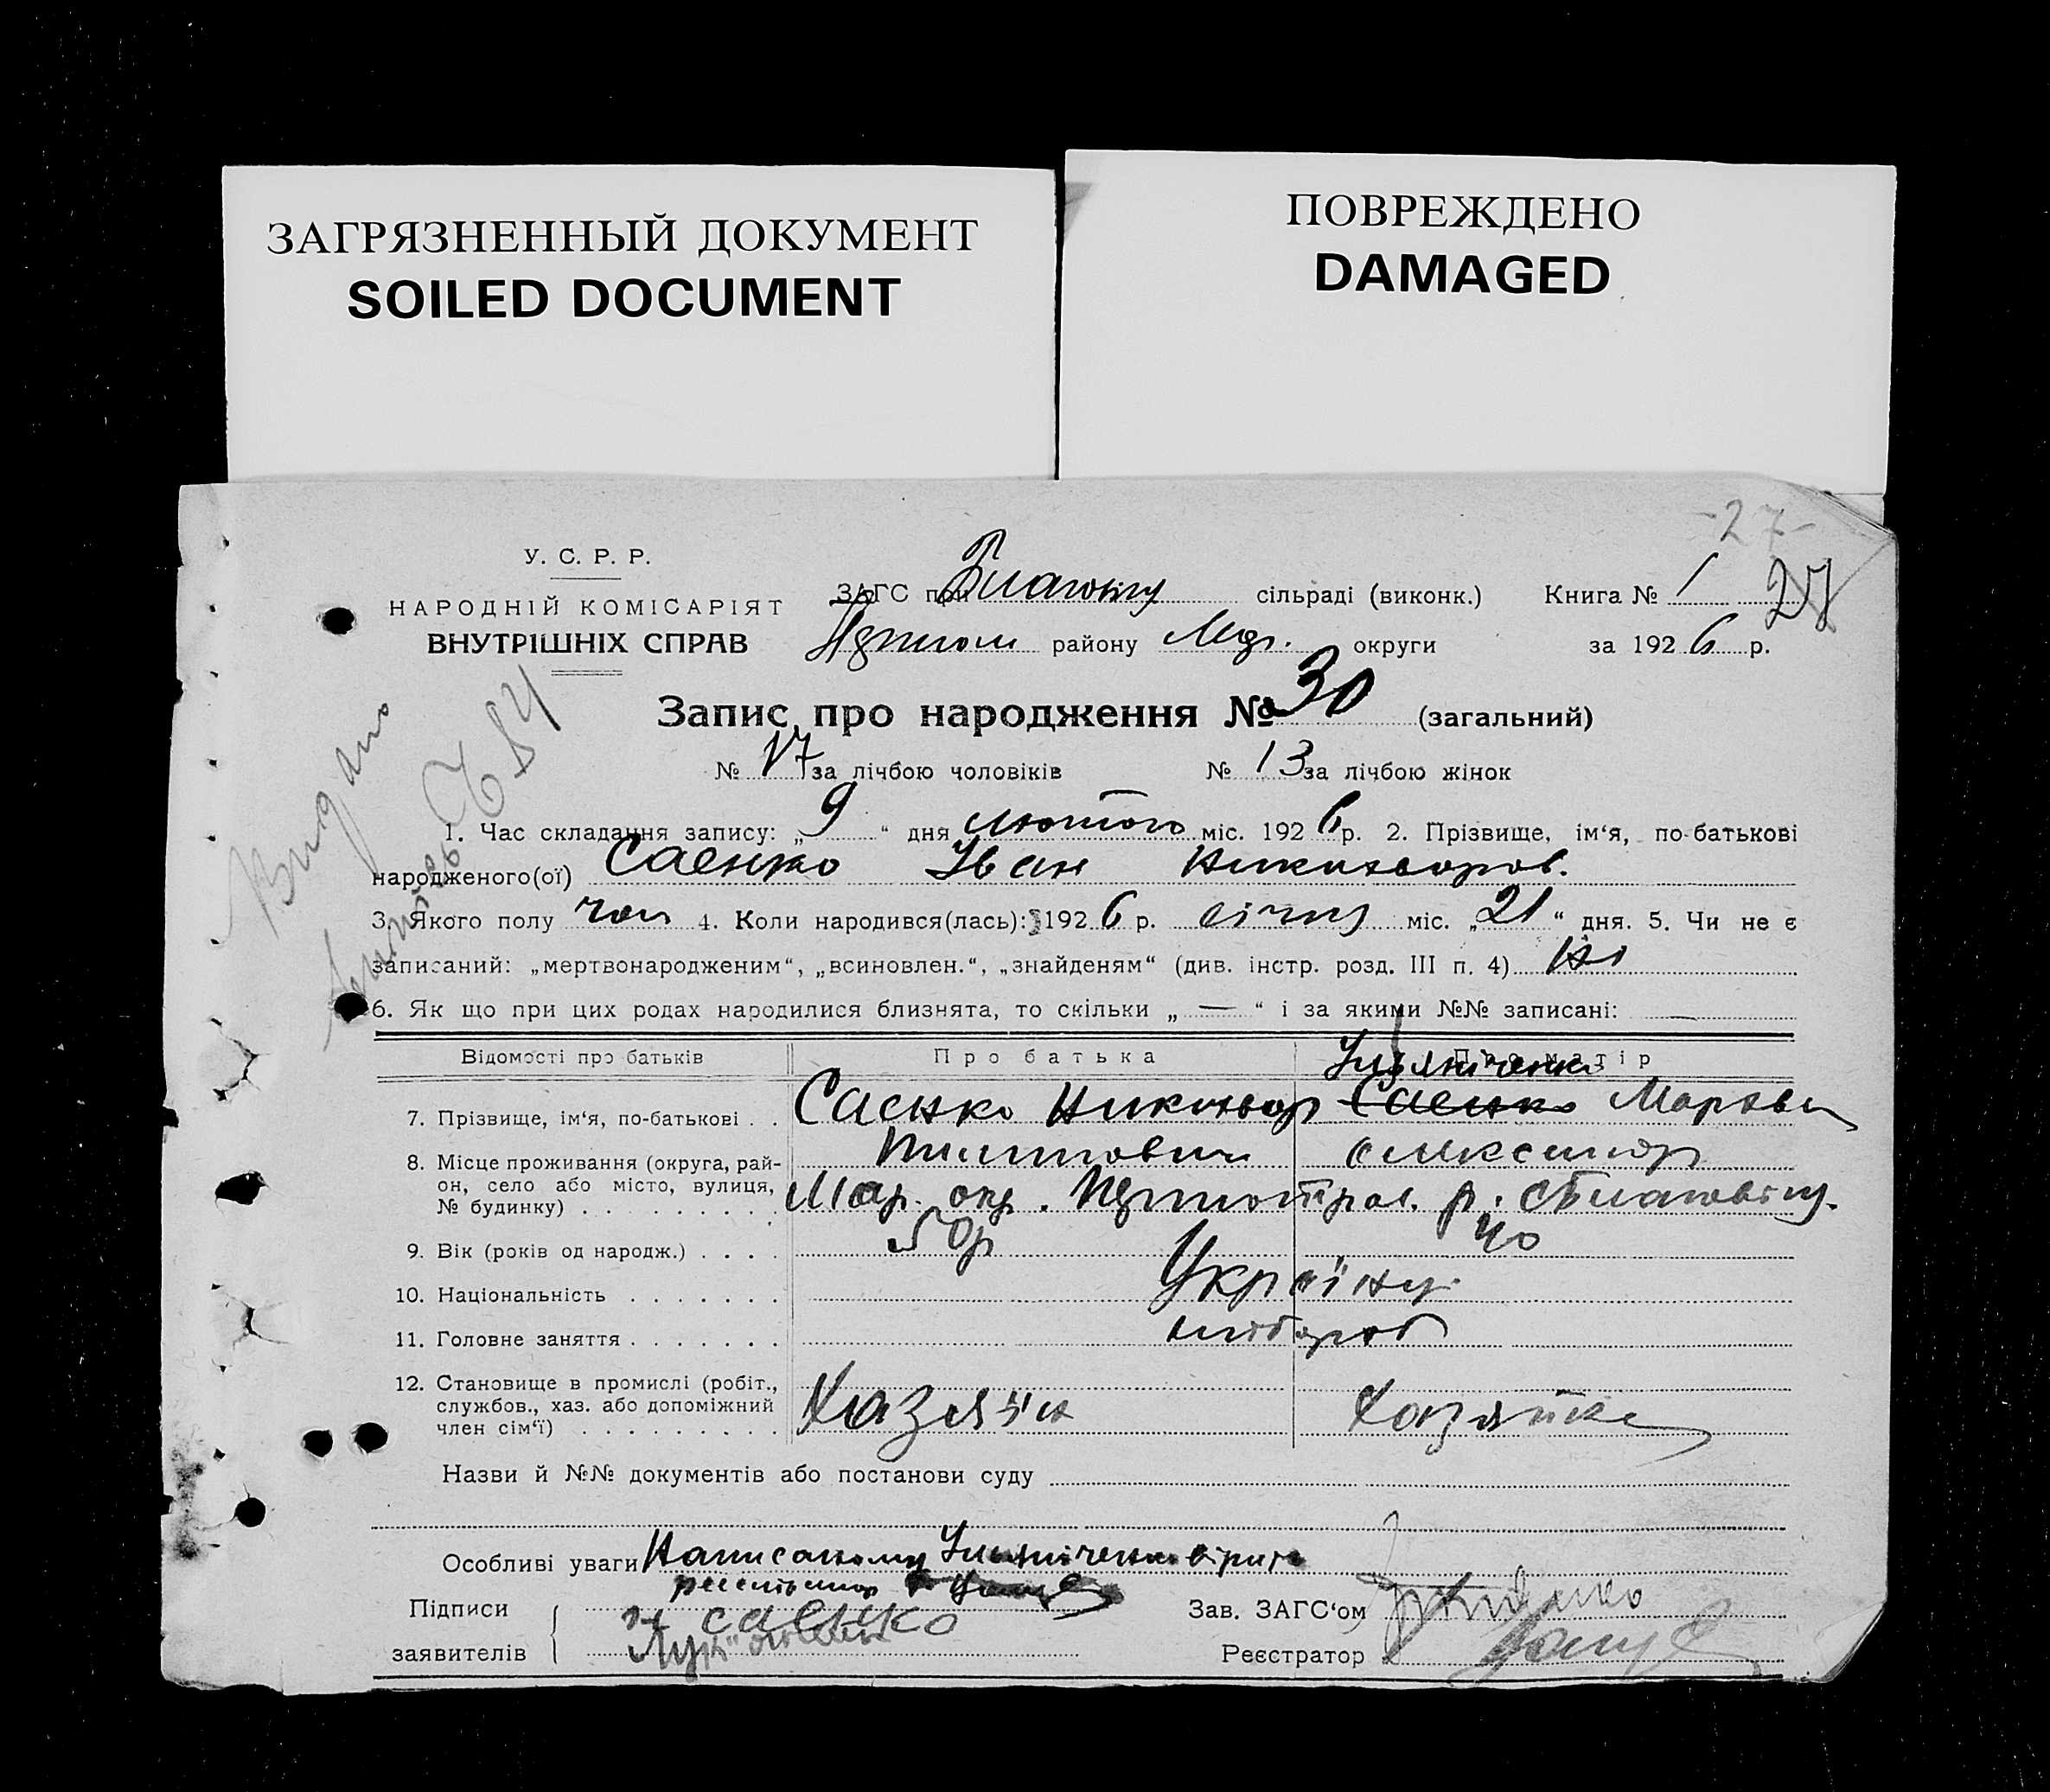 ЗАГРЯЗНЕННЫЙ ДОКУМЕНТ
SOILED DOCUMENT
ПОВРЕЖДЕНО
DAMAGED
-27-
У. С. Р. Р.
НАРОДНІЙ КОМІСАРІЯТ
ВНУТРІШНІХ СПРАВ
ЗАГС при сільраді (виконк.) Книга № 1 27
району Мар. округи за 1926 р.
Запис про народження № 30 (загальний)
№ 17 за лічбою чоловіків № 13 за лічбою жінок
Видано
1. Час складання запису: „9“ дня лютого міс. 1926 р. 2. Прізвище, ім‘я, по-батькові
народженого(ої) Саенко Іван Никифоров.
3. Якого полу чол 4. Коли народився(лась): 1926 р. січня міс. „21“ дня. 5. Чи не є
записаний: „мертвонародженим“, „всиновлен.“, „знайденям“ (див. інстр. розд. III п. 4) ні
6. Як що при цих родах народилися близнята, то скільки „ — “ і за якими №№ записані:
Відомості про батьків Про батька Про матір
7. Прізвище, ім‘я, по-батькові . . Саенко Никифор Саенко Марфа
Пилипович Олександр
8. Місце проживання (округа, рай-
он, село або місто, вулиця,
№ будинку) . . . . . . . . . Мар. окр. р.
9. Вік (років од народж.) . . . . 50 р 40
10. Національність . . . . . . . Україн
11. Головне заняття . . . . . . . хлібороб
12. Становище в промислі (робіт.,
службов., хаз. або допоміжний
член сім‘ї) . . . . . . . . . Хазяїн Хазяйка
Назви й №№ документів або постанови суду
Особливі уваги Написаному вірить
Підписи
заявителів
Н Саенко
Зав. ЗАГС‘ом
Реєстратор